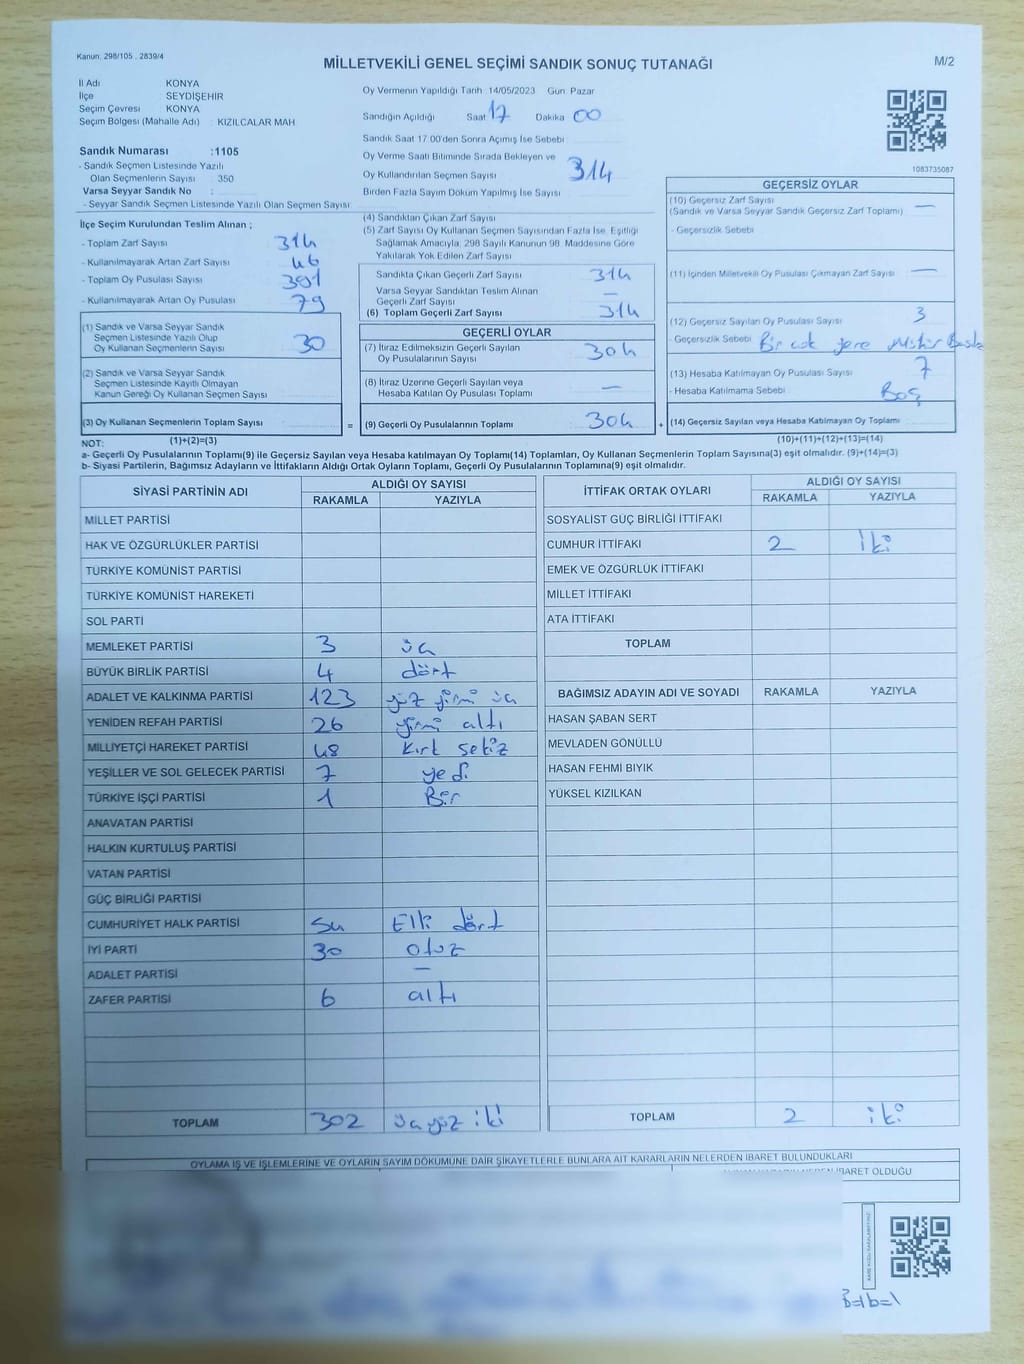 Kanun: 298/105 , 2839/4
MİLLETVEKİLİ GENEL SEÇİMİ SANDIK SONUÇ TUTANAĞI
M/2
İl Adı KONYA
İlçe SEYDİŞEHİR
Seçim Çevresi KONYA
Seçim Bölgesi (Mahalle Adı) : KIZILCALAR MAH
Sandık Numarası :1105
- Sandık Seçmen Listesinde Yazılı
Olan Seçmenlerin Sayısı : 350
Varsa Seyyar Sandık No :
- Seyyar Sandık Seçmen Listesinde Yazılı Olan Seçmen Sayısı :
Oy Vermenin Yapıldığı Tarih 14/05/2023 Gün Pazar
Sandığın Açıldığı Saat 17 Dakika 00
Sandık Saat 17:00'den Sonra Açılmış İse Sebebi
Oy Verme Saati Bitiminde Sırada Bekleyen ve
Oy Kullandırılan Seçmen Sayısı 314
Birden Fazla Sayım Döküm Yapılmış İse Sayısı
1083735087
İlçe Seçim Kurulundan Teslim Alınan ;
- Toplam Zarf Sayısı 314
- Kullanılmayarak Artan Zarf Sayısı 46
- Toplam Oy Pusulası Sayısı 391
- Kullanılmayarak Artan Oy Pusulası 79
(1) Sandık ve Varsa Seyyar Sandık
Seçmen Listesinde Yazılı Olup
Oy Kullanan Seçmenlerin Sayısı 30
(2) Sandık ve Varsa Seyyar Sandık
Seçmen Listesinde Kayıtlı Olmayan
Kanun Gereği Oy Kullanan Seçmen Sayısı
(3) Oy Kullanan Seçmenlerin Toplam Sayısı =
(4) Sandıktan Çıkan Zarf Sayısı
(5) Zarf Sayısı Oy Kullanan Seçmen Sayısından Fazla İse, Eşitliği
Sağlamak Amacıyla, 298 Sayılı Kanunun 98. Maddesine Göre
Yakılarak Yok Edilen Zarf Sayısı
Sandıkta Çıkan Geçerli Zarf Sayısı 314
Varsa Seyyar Sandıktan Teslim Alınan
Geçerli Zarf Sayısı —
(6) Toplam Geçerli Zarf Sayısı 314
GEÇERLİ OYLAR
(7) İtiraz Edilmeksizin Geçerli Sayılan
Oy Pusulalarının Sayısı 304
(8) İtiraz Üzerine Geçerli Sayılan veya
Hesaba Katılan Oy Pusulası Toplamı —
(9) Geçerli Oy Pusulalarının Toplamı 304 +
GEÇERSİZ OYLAR
(10) Geçersiz Zarf Sayısı
(Sandık ve Varsa Seyyar Sandık Geçersiz Zarf Toplamı) —
- Geçersizlik Sebebi
(11) İçinden Milletvekili Oy Pusulası Çıkmayan Zarf Sayısı —
(12) Geçersiz Sayılan Oy Pusulası Sayısı 3
- Geçersizlik Sebebi Bir çok yere Mühür
(13) Hesaba Katılmayan Oy Pusulası Sayısı 7
- Hesaba Katılmama Sebebi Boş
(14) Geçersiz Sayılan veya Hesaba Katılmayan Oy Toplamı
NOT: (1)+(2)=(3)
(10)+(11)+(12)+(13)=(14)
a- Geçerli Oy Pusulaları Toplamı(9) ile Geçersiz Sayılan veya Hesaba katılmayan Oy Toplamı(14) Toplamları, Oy Kullanan Seçmenlerin Toplam Sayısına(3) eşit olmalıdır. (9)+(14)=(3)
b- Siyasi Partilerin, Bağımsız Adayların ve İttifakların Aldığı Ortak Oyların Toplamı, Geçerli Oy Pusulalarının Toplamına(9) eşit olmalıdır.
SİYASİ PARTİNİN ADI
ALDIĞI OY SAYISI
RAKAMLA YAZIYLA
MİLLET PARTİSİ
HAK VE ÖZGÜRLÜKLER PARTİSİ
TÜRKİYE KOMÜNİST PARTİSİ
TÜRKİYE KOMÜNİST HAREKETİ
SOL PARTİ
MEMLEKET PARTİSİ 3 üç
BÜYÜK BİRLİK PARTİSİ 4 dört
ADALET VE KALKINMA PARTİSİ 123 yüz yirmi üç
YENİDEN REFAH PARTİSİ 26 yirmi altı
MİLLİYETÇİ HAREKET PARTİSİ 48 kırk sekiz
YEŞİLLER VE SOL GELECEK PARTİSİ 7 yedi
TÜRKİYE İŞÇİ PARTİSİ 1 Bir
ANAVATAN PARTİSİ
HALKIN KURTULUŞ PARTİSİ
VATAN PARTİSİ
GÜÇ BİRLİĞİ PARTİSİ
CUMHURİYET HALK PARTİSİ 54 Elli dört
İYİ PARTİ 30 otuz
ADALET PARTİSİ —
ZAFER PARTİSİ 6 altı
TOPLAM 302 üçyüz iki
İTTİFAK ORTAK OYLARI
ALDIĞI OY SAYISI
RAKAMLA YAZIYLA
SOSYALİST GÜÇ BİRLİĞİ İTTİFAKI
CUMHUR İTTİFAKI 2 iki
EMEK VE ÖZGÜRLÜK İTTİFAKI
MİLLET İTTİFAKI
ATA İTTİFAKI
TOPLAM
BAĞIMSIZ ADAYIN ADI VE SOYADI RAKAMLA YAZIYLA
HASAN ŞABAN SERT
MEVLADEN GÖNÜLLÜ
HASAN FEHMİ BIYIK
YÜKSEL KIZILKAN
TOPLAM 2 iki
OYLAMA İŞ VE İŞLEMLERİNE VE OYLARIN SAYIM DÖKÜMÜNE DAİR ŞİKAYETLERLE BUNLARA AİT KARARLARIN NELERDEN İBARET BULUNDUKLARI
İBARET OLDUĞU